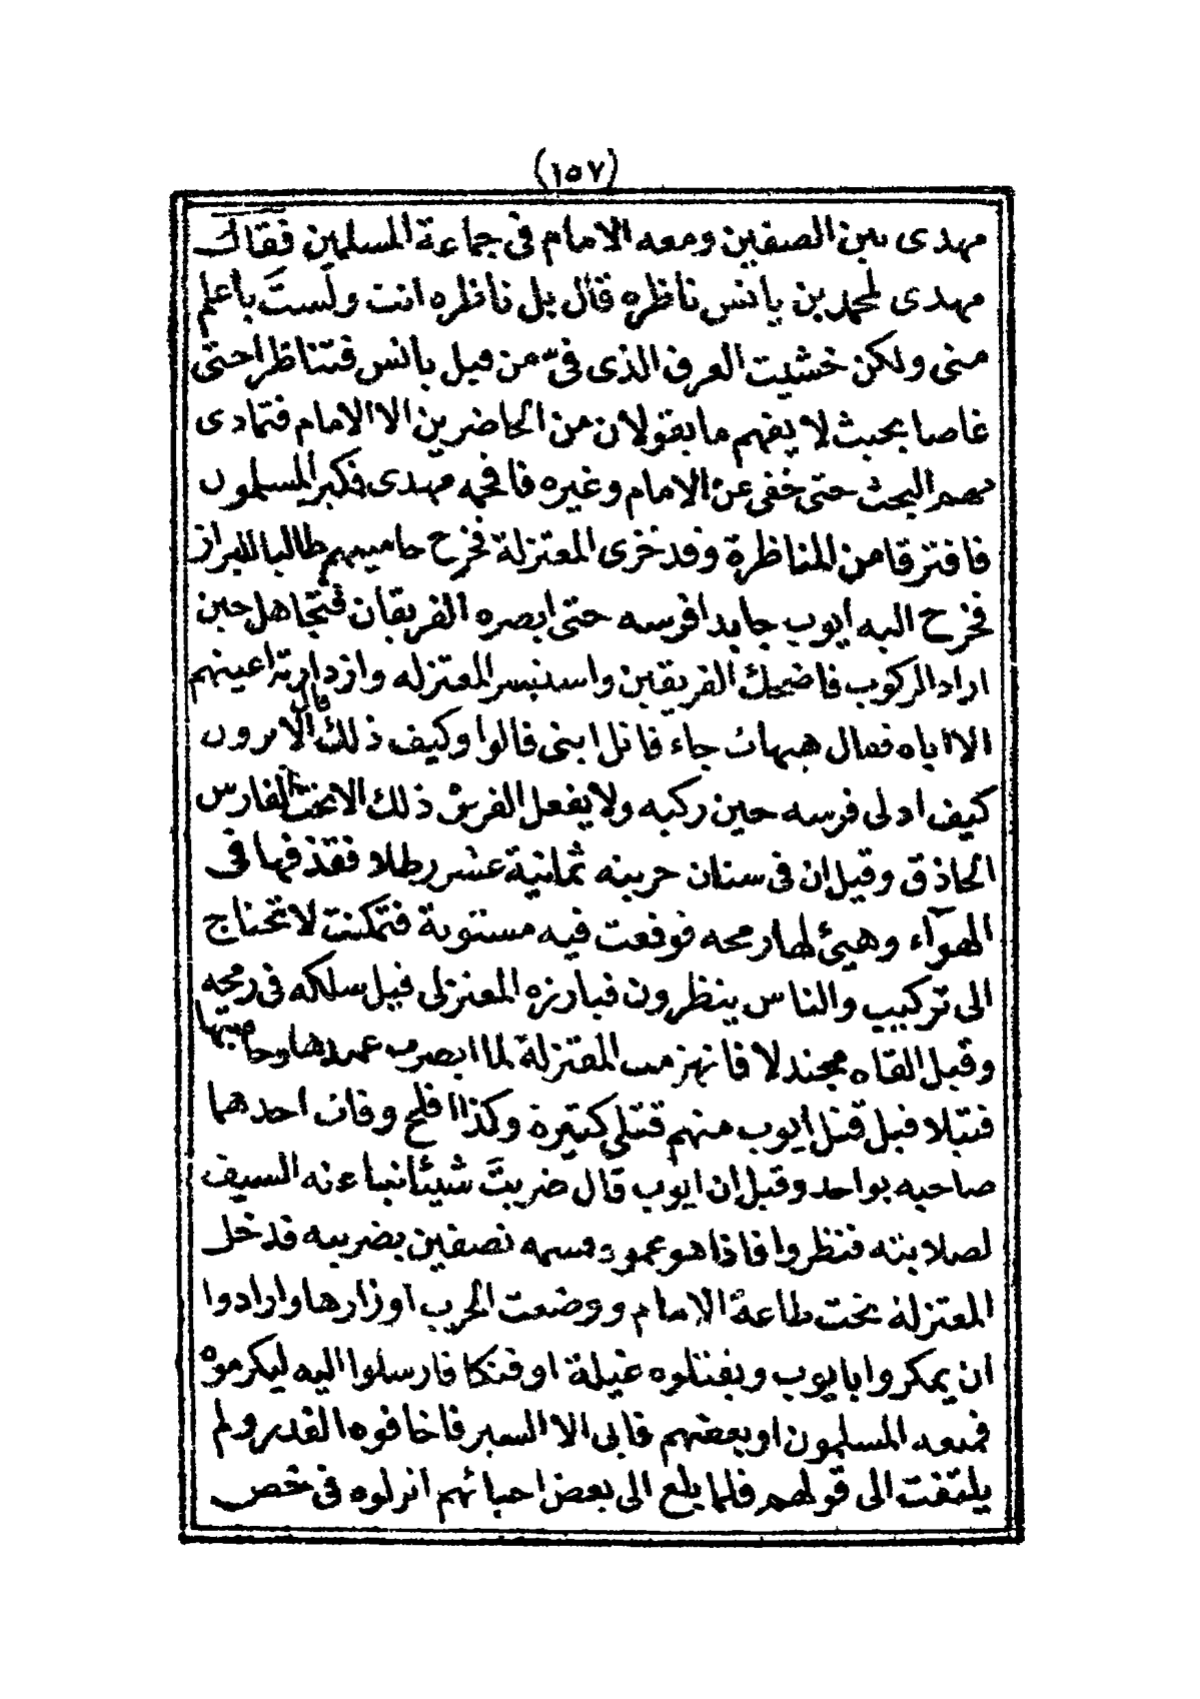 (١٥٧)
مهدى بين الصفين ومعه الامام فى جماعة المسلمين فقال
مهدى لمحمد بن يانس ناظره قال بل ناظره انت ولستَ بأعلم
منى ولكن خشيت العرق الذى فىّ من قبل يانس فتناظرا حتى
غاصا بحيث لا يفهم ما يقولان من الحاضرين الا الامام فتمادى
بهم البحث حتى خفى عن الامام وغيره فافحمه مهدى فكبر المسلمون
فافترقا من المناظرة وقد خزى المعتزلة فخرج حاميهم طالبا للبراز
فخرج اليه ايوب جابدا فرسه حتى ابصره الفريقان فتجاهل حين
اراد الركوب فاضحك الفريقين واستبسر المعتزله وازدارته اعينهم
الا اباه فقال هيهات جاء قاتل ابنى قالوا وكيف ذلك قال الا ترون
كيف ادلى فرسه حين ركبه ولا يفعل الفرس ذلك الا تحت الفارس
الحاذق وقيل ان فى سنان حربته ثمانية عشر رطلا فقذفها فى
الهوآء وهيئ لها رمحه فوقعت فيه مستوية فتمكنت لا تحتاج
الى تركيب والناس ينظرون فبارزه المعتزلى قبل سلكه فى رمحه
وقبل القاه مجندلا فانهزمت المعتزلة لما ابصرت عمدها وحاميتها
قتيلا قيل قتل ايوب منهم قتلى كثيرة وكذا افلح وفات احدهما
صاحبه بواحد وقيل ان ايوب قال ضربتَ شيئا نبا عنه السيف
لصلابته فنظروا فاذا هو عمود قسمه نصفين بضربه فدخل
المعتزلة تحت طاعة الامام ووضعت الحرب اوزارها وارادوا
ان يمكروا بايوب ويقتلوه غيلة او فتكا فارسلوا اليه ليكرموه
فمنعه المسلمون او بعضهم فابى الا السير فاخافوه الغدر ولم
يلتفت الى قولهم فلما بلغ الى بعض احيائهم انزلوه فى خص